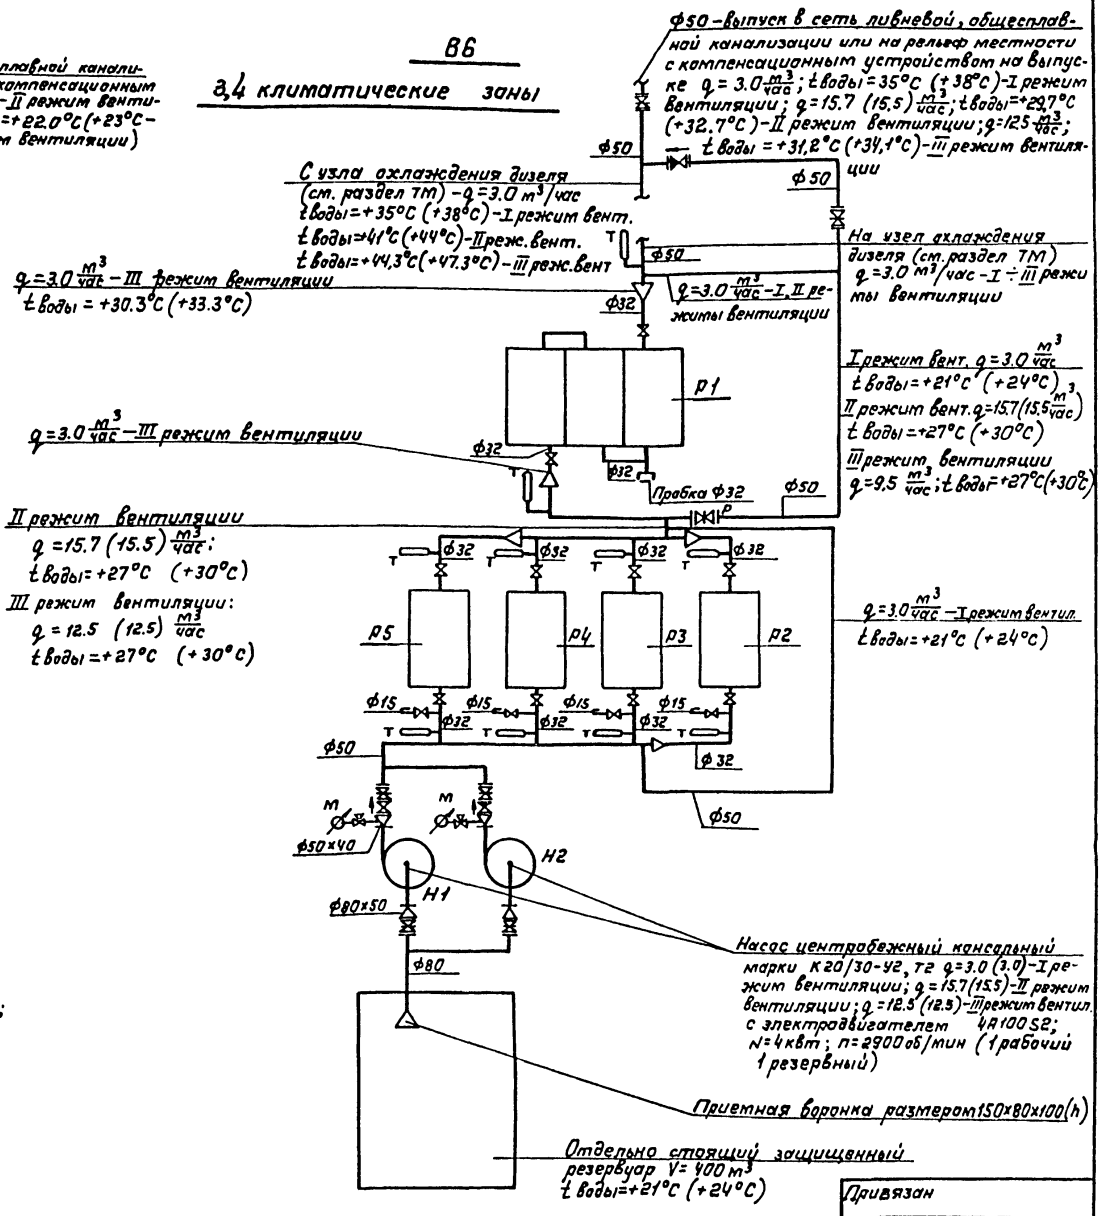 В6
3,4 климатические зоны
плавной канали-
компенсационным
–II режим венти-
=+22.0°С(+23°С–
м вентиляции)
ф50–выпуск в сеть ливневой, общесплав-
ной канализации или на рельеф местности
с компенсационным устройством на выпус-
ке q = 3.0 м³/час; tводы=35°С (+38°С)–I режим
вентиляции; q=15.7 (15,5) м³/час; tводы=+29,7°С
(+32.7°С)–II режим вентиляции; q=12.5 м³/час;
t воды = +31,2°С (+34,1°С)–III режим вентиля-
ции
ф50
ф50
С узла охлаждения дизеля
(см. раздел ТМ) –q=3.0 м³/час
tводы=+35°С (+38°С)–I режим вент.
tводы=+41°С (+44°С)–II реж. вент.
tводы=+44,3°С (+47.3°С)–III реж. вент
Т
ф50
На узел охлаждения
дизеля (см. раздел ТМ)
q=3.0 м³/час –I ÷ III режи
мы вентиляции
q=3.0 м³/час –III режим вентиляции
t воды = +30.3°С (+33.3°С)
ф32
q=3.0 м³/час –I, II ре-
жимы вентиляции
Р1
I режим вент. q=3.0 м³/час
tводы=+21°С (+24°С)
II режим вент. q=15.7(15,5 м³/час)
t воды=+27°С (+30°С)
III режим вентиляции
q=9,5 м³/час; tводы=+27°С(+30°С)
q=3.0 м³/час –III режим вентиляции
ф32
Т
ф32
Пробка ф32
ф50
Р
II режим вентиляции
q=15.7 (15.5) м³/час;
tводы=+27°С (+30°С)
III режим вентиляции:
q = 12.5 (12.5) м³/час
tводы=+27°С (+30°С)
Т ф32 Т ф32 Т ф32 Т ф32
Р5 Р4 Р3 Р2
q=3.0 м³/час –I режим вентил.
tводы=+21°С (+24°С)
ф15 ф15 ф15 ф15
Т ф32 Т ф32 Т ф32 Т
ф50
ф32
ф50
М М
ф50×40
Н1
Н2
ф80×50
ф80
Насос центробежный консольный
марки К20/30-У2, Т2 q=3.0 (3.0)–I ре-
жим вентиляции; q=15.7(15.5)–II режим
вентиляции; q=12.5 (12.5)–III режим вентил.
с электродвигателем 4А100S2;
N=4квт; п=2900об/мин (1 рабочий
1 резервный)
Приемная воронка размером150×80×100(h)
Отдельно стоящий защищенный
резервуар V= 400 м³
t воды=+21°С (+24°С)
Привязан